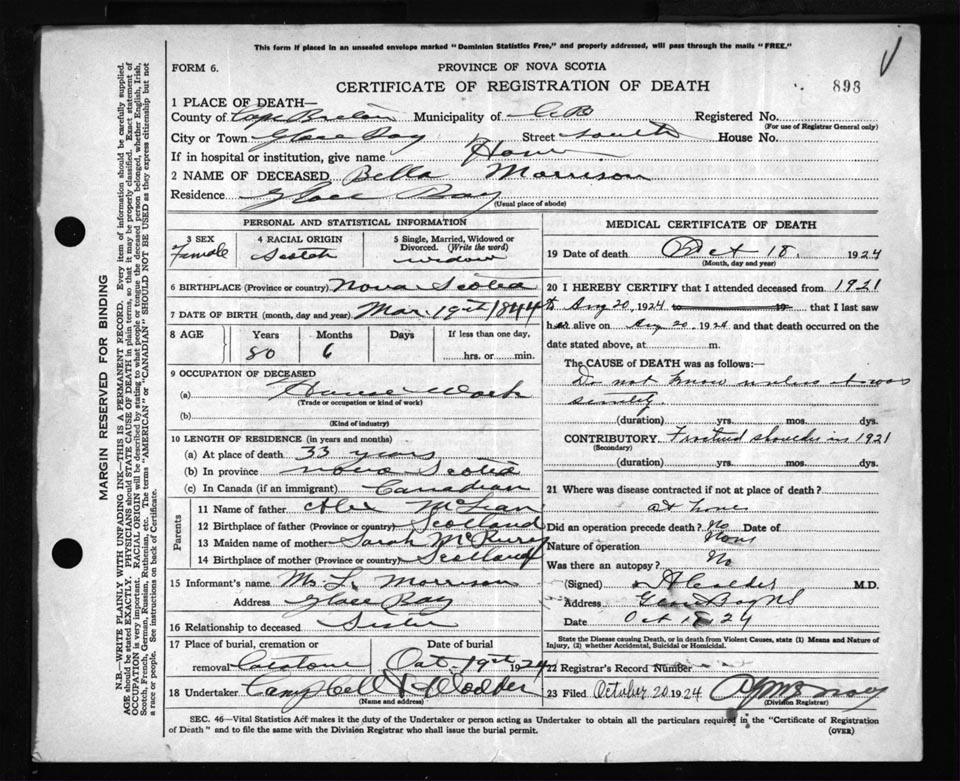 This form if placed in an unsealed envelope marked "Dominion Statistics Free," and properly addressed, will pass through the mails "FREE."
FORM 6.
PROVINCE OF NOVA SCOTIA
CERTIFICATE OF REGISTRATION OF DEATH
893
1 PLACE OF DEATH—
County of Cape Breton Municipality of C B Registered No.
(For use of Registrar General only)
City or Town Glace Bay Street South House No.
If in hospital or institution, give name Home
2 NAME OF DECEASED Bella Morrison
Residence Glace Bay
(Usual place of abode)
PERSONAL AND STATISTICAL INFORMATION
3 SEX
Female
4 RACIAL ORIGIN
Scotch
5 Single, Married, Widowed or Divorced. (Write the word)
widow
6 BIRTHPLACE (Province or country) Nova Scotia
7 DATE OF BIRTH (month, day and year) Mar. 19th 1844
8 AGE
Years
80
Months
6
Days
If less than one day,
hrs. or min.
9 OCCUPATION OF DECEASED
(a) House Work
(Trade or occupation or kind of work)
(b)
(Kind of industry)
10 LENGTH OF RESIDENCE (in years and months)
(a) At place of death 33 years
(b) In province Nova Scotia
(c) In Canada (if an immigrant) Canadian
Parents
11 Name of father Alex McLean
12 Birthplace of father (Province or country) Scotland
13 Maiden name of mother Sarah
14 Birthplace of mother (Province or country) Scotland
15 Informant's name Morrison
Address Glace Bay
16 Relationship to deceased Sister
17 Place of burial, cremation or removal
Date of burial
Oct 19th 1924
18 Undertaker Campbell
(Name and address)
MEDICAL CERTIFICATE OF DEATH
19 Date of death Oct 18. 1924
(Month, day and year)
20 I HEREBY CERTIFY that I attended deceased from 1921
to Aug 20, 1924 19 that I last saw
her alive on Aug 20 1924 and that death occurred on the
date stated above, at m.
The CAUSE OF DEATH was as follows:
Do not know unless it was
senility
(duration) yrs. mos. dys.
CONTRIBUTORY. shoulder in 1921
(Secondary)
(duration) yrs. mos. dys.
21 Where was disease contracted if not at place of death?
at home
Did an operation precede death? No Date of
Nature of operation None
Was there an autopsy? No
(Signed) M.D.
Address Glace Bay NS
Date Oct 18 24
State the Disease causing Death, or in death from Violent Causes, state (1) Means and Nature of Injury, (2) whether Accidental, Suicidal or Homicidal.
22 Registrar's Record Number
23 Filed October 20 1924
(Division Registrar)
SEC. 46—Vital Statistics Act makes it the duty of the Undertaker or person acting as Undertaker to obtain all the particulars required in the "Certificate of Registration
of Death" and to file the same with the Division Registrar who shall issue the burial permit.
(OVER)
MARGIN RESERVED FOR BINDING
N.B.—WRITE PLAINLY WITH UNFADING INK—THIS IS A PERMANENT RECORD. Every item of information should be carefully supplied.
AGE should be stated EXACTLY. PHYSICIANS should STATE CAUSE OF DEATH in plain terms, so that it may be properly classified. Exact statement of
OCCUPATION is very important. RACIAL ORIGIN will be described by stating to what people or tongue the deceased person belonged, whether English, Irish,
Scotch, French, German, Russian, Ruthenian, etc. The terms "AMERICAN" or "CANADIAN" SHOULD NOT BE USED as they express citizenship but not
a race or people. See instructions on back of Certificate.